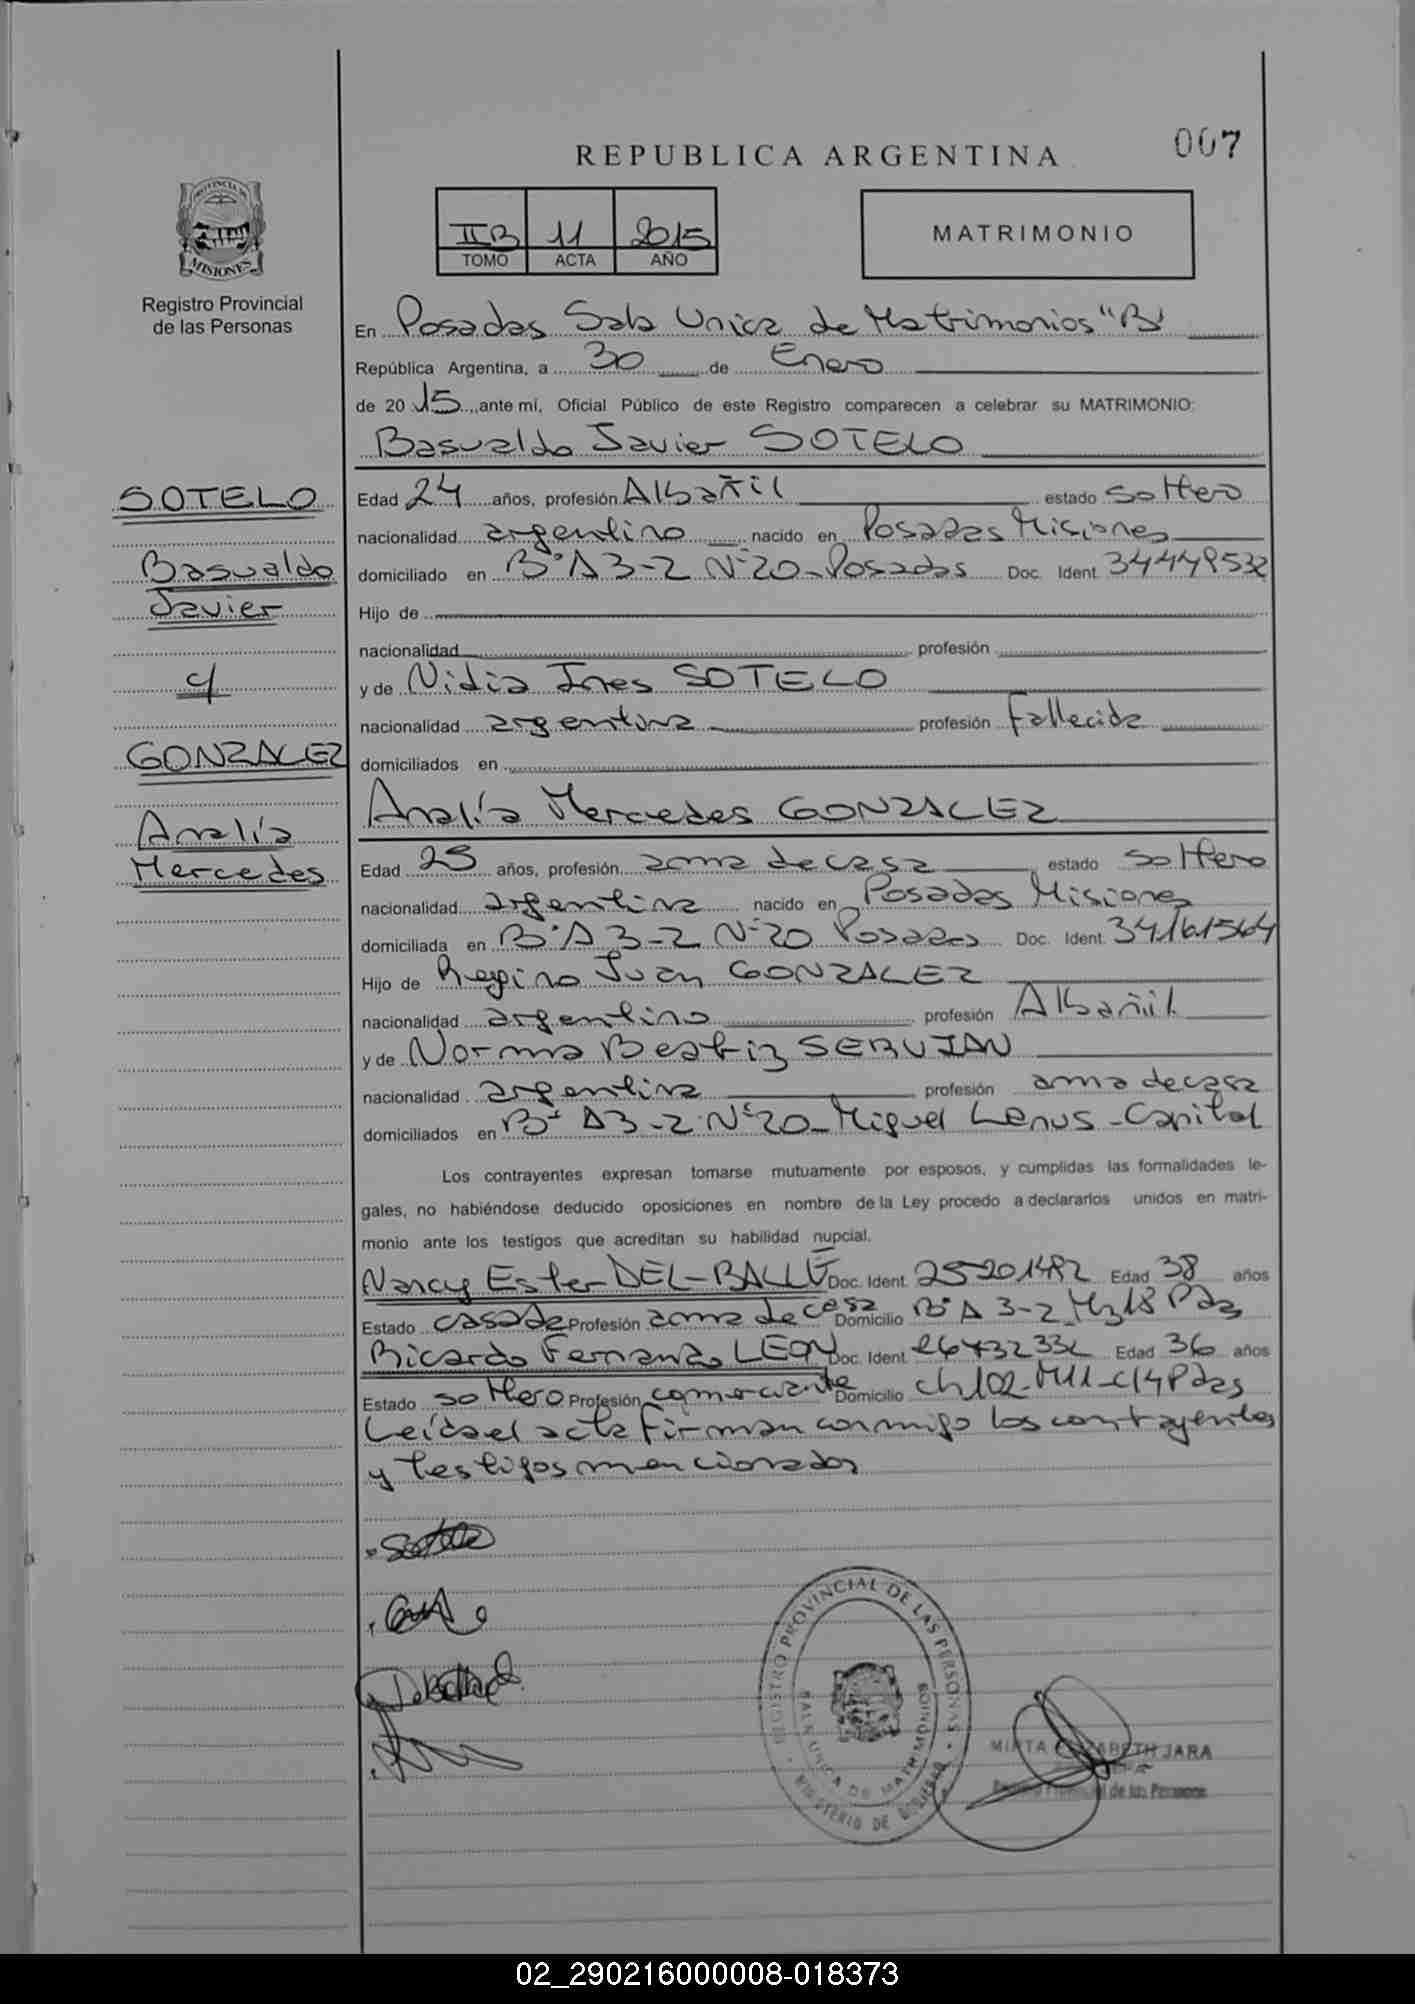 007
REPUBLICA ARGENTINA
IIB 11 2015
TOMO ACTA AÑO
MATRIMONIO
PROVINCIA DE
MISIONES
Registro Provincial
de las Personas
En Posadas Sala Unica de Matrimonios "B"
República Argentina, a 30 de Enero
de 20 15 ante mí, Oficial Público de este Registro comparecen a celebrar su MATRIMONIO:
Basualdo Javier SOTELO
SOTELO
Basualdo
Javier
y
GONZALEZ
Analía
Mercedes
Edad 24 años, profesión Albañil estado soltero
nacionalidad argentino nacido en Posadas Misiones
domiciliado en B° A 3-2 N° 20 - Posadas Doc. Ident. 34449532
Hijo de
nacionalidad profesión
y de Nidia Ines SOTELO
nacionalidad argentina profesión fallecida
domiciliados en
Analía Mercedes GONZALEZ
Edad 25 años, profesión ama de casa estado soltera
nacionalidad argentina nacido en Posadas Misiones
domiciliada en B° A 3-2 N° 20 Posadas Doc. Ident. 34161564
Hijo de Regino Juan GONZALEZ
nacionalidad argentino profesión Albañil
y de Norma Beatriz SERVIAN
nacionalidad argentina profesión ama de casa
domiciliados en B° A3-2 N° 20 - Miguel Lanus - Capital
Los contrayentes expresan tomarse mutuamente por esposos, y cumplidas las formalidades le-
gales, no habiéndose deducido oposiciones en nombre de la Ley procedo a declararlos unidos en matri-
monio ante los testigos que acreditan su habilidad nupcial.
Nancy Ester DEL-BALLE Doc. Ident. 25201482 Edad 38 años
Estado casada Profesión ama de casa Domicilio B° A 3-2 Mz 18 Pdas
Ricardo Fernando LEON Doc. Ident. Edad 36 años
Estado soltero Profesión comerciante Domicilio ch 102 - M11 - C14 Pdas
Leída el acta firman conmigo los contrayentes
y testigos mencionados
REGISTRO PROVINCIAL DE LAS PERSONAS
SALA UNICA DE MATRIMONIOS
MINISTERIO DE GOBIERNO
MIRTA ELIZABETH JARA
Registro Provincial de las Personas
02_290216000008-018373